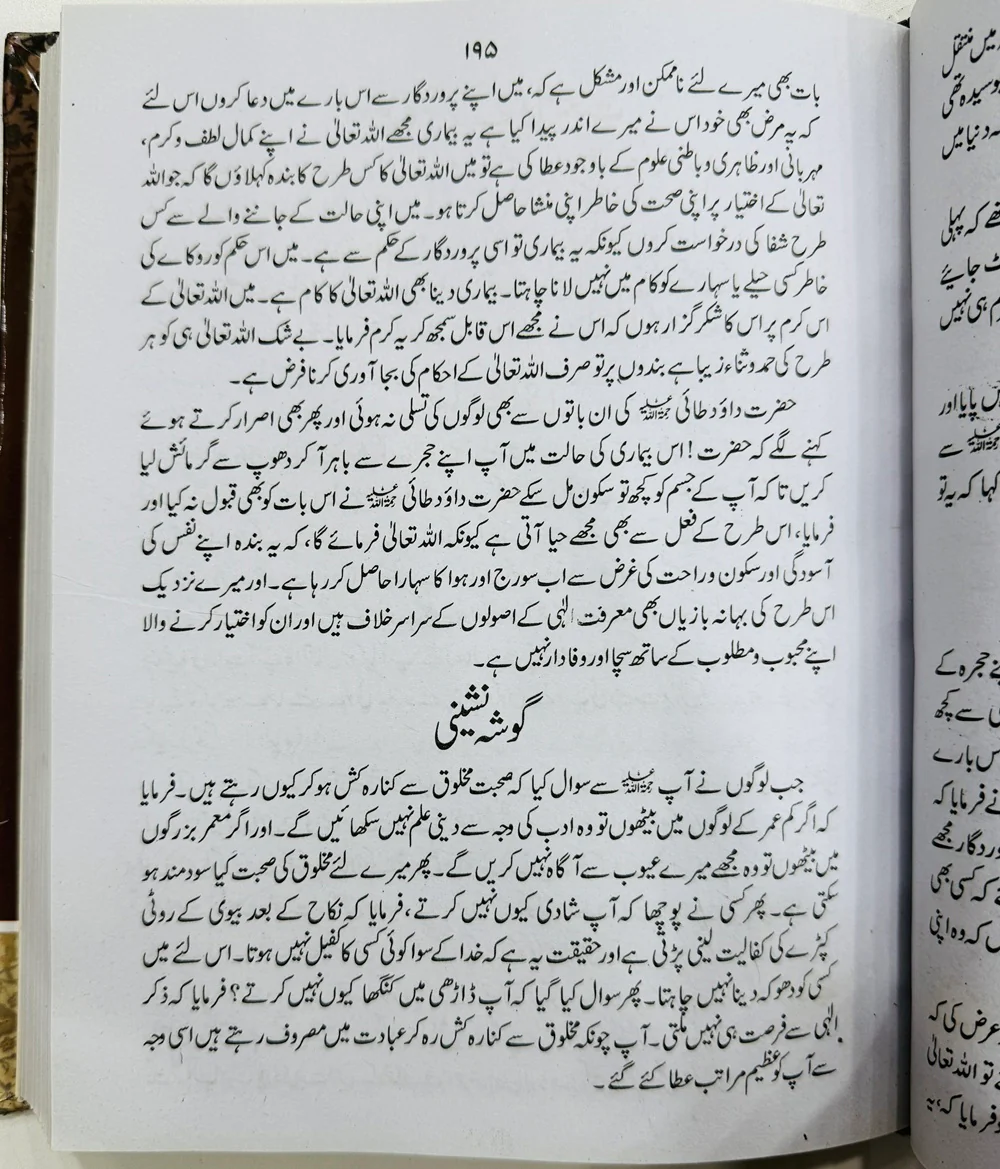 ۱۹۵
بات بھی میرے لئے ناممکن اور مشکل ہے کہ، میں اپنے پروردگار سے اس بارے میں دعا کروں اس لئے
کہ یہ مرض بھی خود اس نے میرے اندر پیدا کیا ہے یہ بیماری مجھے اللہ تعالیٰ نے اپنے کمال لطف و کرم،
مہربانی اور ظاہری و باطنی علوم کے باوجود عطا کی ہے تو میں اللہ تعالیٰ کا کس طرح کا بندہ کہلاؤں گا کہ جو اللہ
تعالیٰ کے اختیار پر اپنی صحت کی خاطر اپنی منشا حاصل کرتا ہو۔ میں اپنی حالت کے جاننے والے سے کس
طرح شفا کی درخواست کروں کیونکہ یہ بیماری تو اسی پروردگار کے حکم سے ہے۔ میں اس حکم کو روکائے کی
خاطر کسی حیلے یا سہارے کو کام میں نہیں لانا چاہتا۔ بیماری دینا بھی اللہ تعالیٰ کا کام ہے۔ میں اللہ تعالیٰ کے
اس کرم پر اس کا شکر گزار ہوں کہ اس نے مجھے اس قابل سمجھ کر یہ کرم فرمایا۔ بے شک اللہ تعالیٰ ہی کو ہر
طرح کی حمد و ثناء زیبا ہے بندوں پر تو صرف اللہ تعالیٰ کے احکام کی بجا آوری کرنا فرض ہے۔
حضرت داؤد طائی رحمۃ اللہ علیہ کی ان باتوں سے بھی لوگوں کی تسلی نہ ہوئی اور پھر بھی اصرار کرتے ہوئے
کہنے لگے کہ حضرت! اس بیماری کی حالت میں آپ اپنے حجرے سے باہر آ کر دھوپ سے گرمائش لیا
کریں تا کہ آپ کے جسم کو کچھ تو سکون مل سکے حضرت داؤد طائی رحمۃ اللہ علیہ نے اس بات کو بھی قبول نہ کیا اور
فرمایا، اس طرح کے فعل سے بھی مجھے حیا آتی ہے کیونکہ اللہ تعالیٰ فرمائے گا، کہ یہ بندہ اپنے نفس کی
آسودگی اور سکون و راحت کی غرض سے اب سورج اور ہوا کا سہارا حاصل کر رہا ہے۔ اور میرے نزدیک
اس طرح کی بہانہ بازیاں بھی معرفت الٰہی کے اصولوں کے سراسر خلاف ہیں اور ان کو اختیار کرنے والا
اپنے محبوب و مطلوب کے ساتھ سچا اور وفادار نہیں ہے۔
گوشہ نشینی
جب لوگوں نے آپ رحمۃ اللہ علیہ سے سوال کیا کہ صحبت مخلوق سے کنارہ کش ہو کر کیوں رہتے ہیں۔ فرمایا
کہ اگر کم عمر کے لوگوں میں بیٹھوں تو وہ ادب کی وجہ سے دینی علم نہیں سکھائیں گے۔ اور اگر معمر بزرگوں
میں بیٹھوں تو وہ مجھے میرے عیوب سے آگاہ نہیں کریں گے۔ پھر میرے لئے مخلوق کی صحبت کیا سود مند ہو
سکتی ہے۔ پھر کسی نے پوچھا کہ آپ شادی کیوں نہیں کرتے، فرمایا کہ نکاح کے بعد بیوی کے روٹی
کپڑے کی کفالیت لینی پڑتی ہے اور حقیقت یہ ہے کہ خدا کے سوا کوئی کسی کا کفیل نہیں ہوتا۔ اس لئے میں
کسی کو دھوکہ دینا نہیں چاہتا۔ پھر سوال کیا گیا کہ آپ ڈاڑھی میں کنگھا کیوں نہیں کرتے؟ فرمایا کہ ذکر
الٰہی سے فرصت ہی نہیں ملتی۔ آپ چونکہ مخلوق سے کنارہ کش رہ کر عبادت میں مصروف رہتے ہیں اسی وجہ
سے آپ کو عظیم مراتب عطا کئے گئے۔